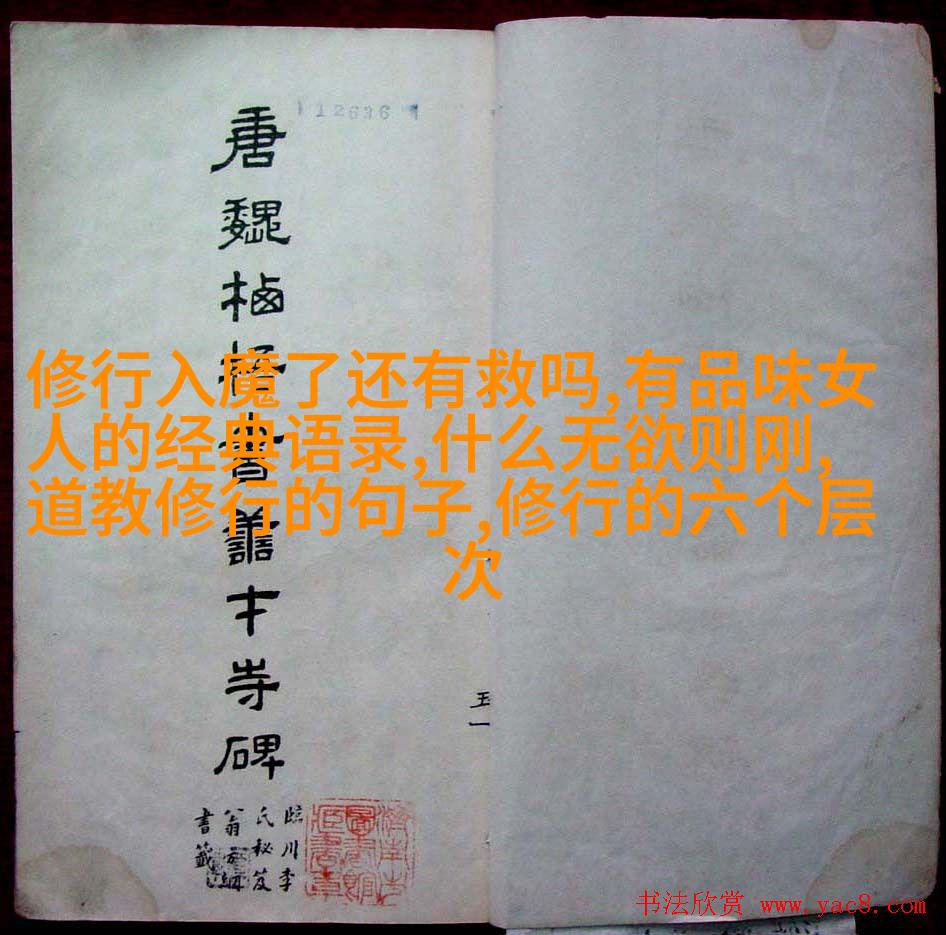 12636
唐魏栖梧書善才寺碑
臨川李
氏秘笈
翁方綱
書籤
濟南市
圖書館
藏書章
修行入魔了还有救吗,有品味女
人的经典语录,什么无欲则刚,
道教修行的句子,修行的六个层
次
书法欣赏 www.yac8.com